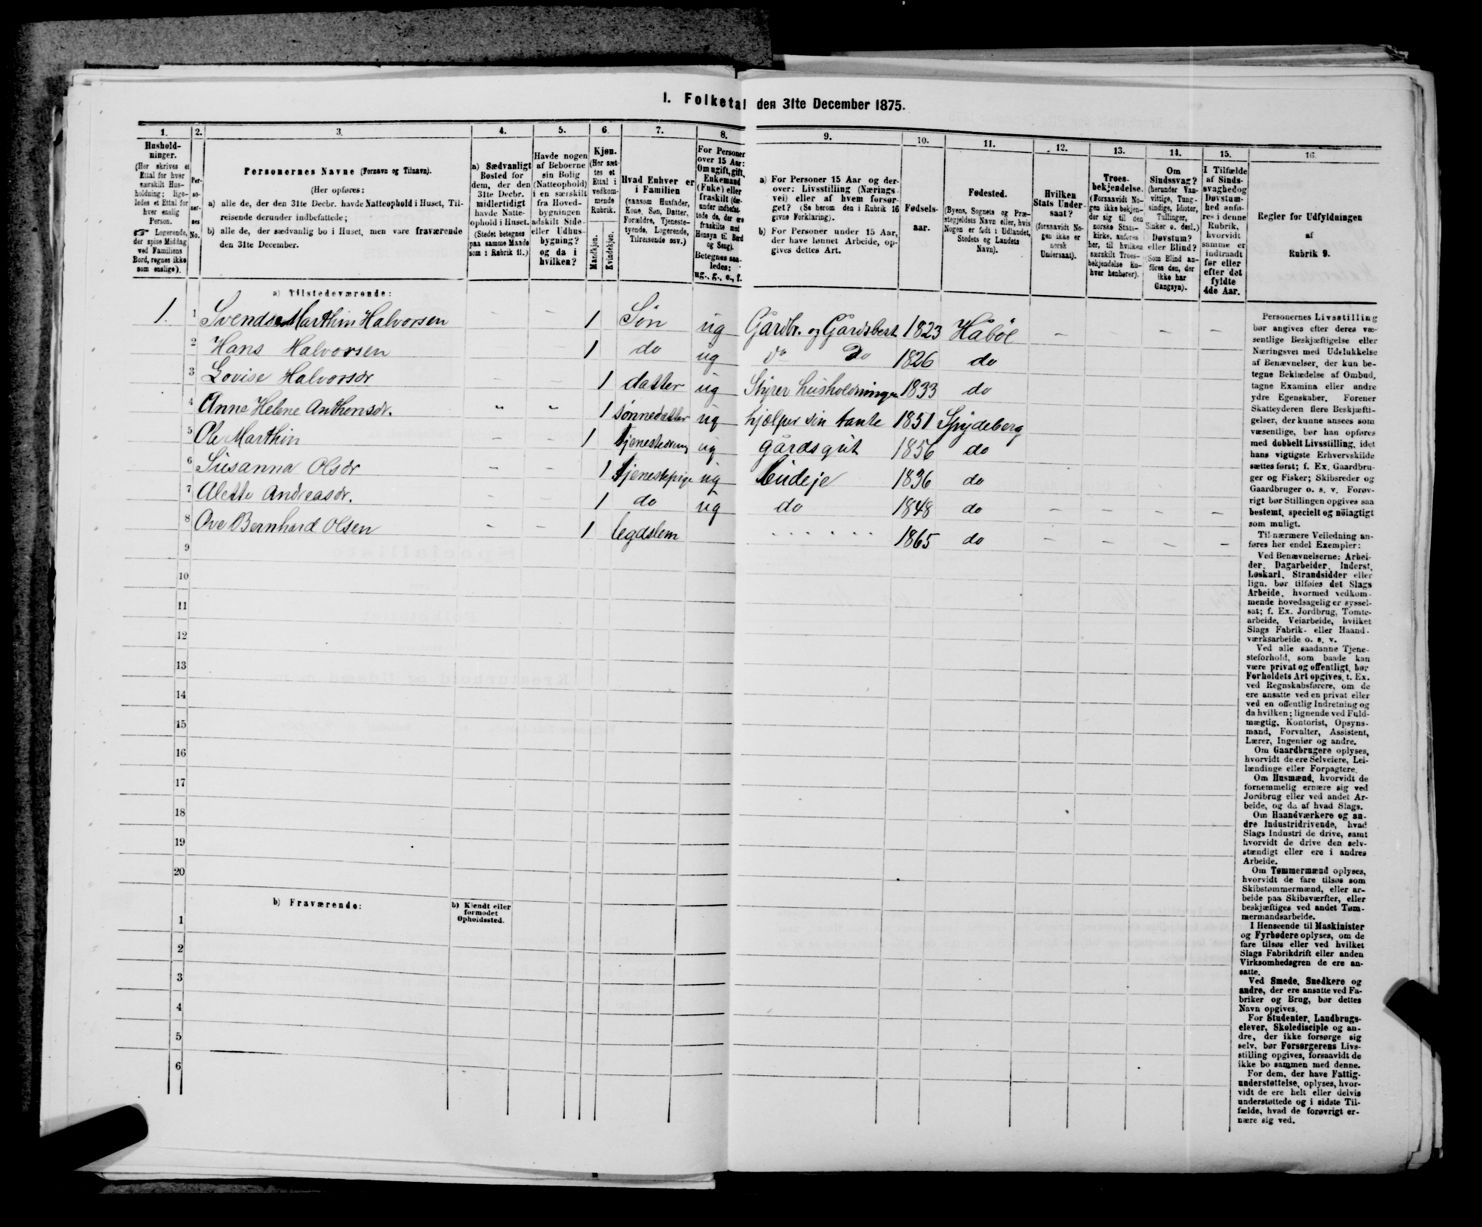 I. Folketal den 31te December 1875.
1.
Husholdninger.
(Her skrives et
Ettal for hver
særskilt Husholdning;
ligeledes et Ettal for
hver enslig
Person.
Logerende,
der spise Middag
ved Familiens
Bord, regnes ikke
som enslige).
2.
Personernes
No.
3.
Personernes Navne (Fornavn og Tilnavn).
(Her opføres:
a) alle de, der den 31te Decbr. havde Natteophold i Huset, Tilreisende derunder indbefattede;
b) alle de, der sædvanlig bo i Huset, men vare fraværende
den 31te December.
4.
a) Sædvanligt
Bosted for
dem, der den
31te Decbr.
midlertidigt
havde Natteophold i Huset.
(Stedet betegnes
paa samme Maade
som i Rubrik 11.)
5.
Havde nogen
af Beboerne
sin Bolig
(Natteophold)
i en særskilt
fra Hovedbygningen
adskilt Side-
eller Udhusbygning?
og da i
hvilken?
6.
Kjøn.
(Her sættes et
Ettal i
vedkommende
Rubrik.
Mandkjøn.
Kvindekjøn.
7.
Hvad Enhver er
i Familien
(saasom Husfader,
Kone, Søn, Datter,
Forældre, Tjenestetyende, Logerende,
Tilreisende osv.)
8.
For Personer
over 15 Aar:
Om ugift, gift,
Enkemand
(Enke) eller
fraskilt
Betegnes saaledes:
ug., g., e., f.
9.
a) For Personer 15 Aar og derover: Livsstilling (Næringsvei) eller af hvem forsørget? (Se herom den i Rubrik 16
givne Forklaring).
b) For Personer under 15 Aar,
der have lønnet Arbeide, opgives dettes Art.
10.
Fødselsaar.
11.
Fødested.
(Byens, Sognets og Præstegjeldets Navn eller, hvis
Nogen er født i Udlandet,
Stedets og Landets
Navn).
12.
Hvilken
Stats Undersaat?
(forsaavidt Nogen ikke er
norsk
Undersaat).
13.
Troesbekjendelse.
(Forsaavidt Nogen ikke bekjender sig til den
norske Statskirke, anføres
her, til hvilken
særskilt Troesbekjendelse Enhver henhører).
14.
Om
Sindssvag?
(herunder Vanvittige, Tungsindige, Idioter,
Tullinger,
Sinker o. desl.)
Døvstum?
eller Blind?
(Som Blind anføres den, der
ikke har
Gangsyn).
15.
I Tilfælde
af Sindssvaghed og
Døvstumhed anføres i denne
Rubrik,
hvorvidt
samme er
indtraadt
før eller
efter det
fyldte
4de Aar.
16.
Regler for Udfyldningen
af
Rubrik 9.
a) Tilstedeværende:
1. 1 Svends Marthin Halvorsen - - 1 Søn ug Gårdbr. og Gårdsbest. 1823 Håböl - - - -
2 Hans Halvorsen - - 1 do ug Do Do 1826 do - - - -
3 Lovise Halvorsdr - - 1 datter ug Styrer husholdningen 1833 do - - - -
4 Anne Helene Anthensdr. " " 1 sønnedatter ug hjælper sin tante 1851 Spydeberg - - - -
5 Ole Marthin - - 1 tjenestedreng ug gårdsgut 1856 do - - - -
6 Susanna Olsdr - - 1 tjenestepige ug budeje 1836 do - - - -
7 Alette Andreasdr. - - 1 do ug do 1848 do - - - -
8 Ove Bernhard Olsen - - 1 legdslem . . . . . . 1865 do - - - -
9
10
11
12
13
14
15
16
17
18
19
20
b) Fraværende:
b) Kjendt eller
formodet
Opholdssted.
1
2
3
4
5
6
Personernes Livsstilling
bør angives efter deres væsentlige Beskjæftigelse eller
Næringsvei med Udelukkelse
af Benævnelser, der kun betegne Beklædelse af Ombud,
tagne Examina eller andre
ydre Egenskaber. Forener
Skatteyderen flere Beskjæftigelser, der kunne ansees som
væsentlige, bør han opføres
med dobbelt Livsstilling, idet
hans vigtigste Erhvervskilde
sættes først; f. Ex. Gaardbruger og Fisker; Skibsreder og
Gaardbruger o. s. v. Forøvrigt bør Stillingen opgives saa
bestemt, specielt og nøiagtigt
som muligt.
Til nærmere Veiledning anføres her endel Exempler:
Ved Benævnelserne: Arbeider, Dagarbeider, Inderst,
Løskarl, Strandsidder eller
lign. bør tilføies det Slags
Arbeide, hvormed vedkommende hovedsagelig er sysselsat; f. Ex. Jordbrug, Tomtearbeide, Veiarbeide, hvilket
Slags Fabrik- eller Haandværksarbeide o. s. v.
Ved alle saadanne Tjenesteforhold, som baade kan
være privat og offentligt, bør
Forholdets Art opgives, t. Ex.
ved Regnskabsførere, om de
ere ansatte ved en privat eller
ved en offentlig Indretning og
da hvilken; lignende ved Fuldmægtig, Kontorist, Opsynsmand, Forvalter, Assistent,
Lærer, Ingeniør og andre.
Om Gaardbrugere oplyses,
hvorvidt de ere Selveiere, Leilændinge eller Forpagtere.
Om Husmænd, hvorvidt de
fornemmelig ernære sig ved
Jordbrug eller ved andet Arbeide, og da af hvad Slags.
Om Haandværkere og andre Industridrivende, hvad
Slags Industri de drive, samt
hvorvidt de drive den selvstændigt eller ere i andres
Arbeide.
Om Tømmermænd oplyses,
hvorvidt de fare tilsøs som
Skibstømmermænd, eller arbeide paa Skibsværfter, eller
beskjæftiges ved andet Tømmermandsarbeide.
I Henseende til Maskinister
og Fyrbødere oplyses, om de
fare tilsøs eller ved hvilket
Slags Fabrikdrift eller anden
Virksomhedsgren de ere ansatte.
Ved Smede, Snedkere og
andre, der ere ansatte ved Fabriker og Brug, bør dettes
Navn opgives.
For Studenter, Landbrugselever, Skoledisciple og andre, der ikke forsørge sig
selv, bør Forsørgerens Livsstilling opgives, forsaavidt de
ikke bo sammen med denne.
For dem, der have Fattigunderstøttelse, oplyses, hvorvidt de ere helt eller delvis
understøttede og i sidste Tilfælde, hvad de forøvrigt ernære sig ved.